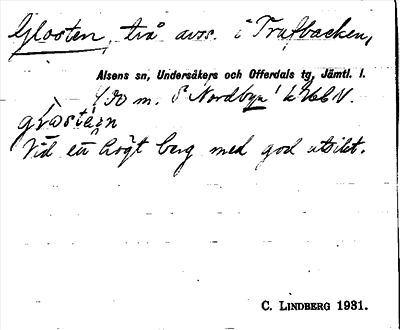 Glosten, två avs. i Trutbacken,
Alsens sn, Undersåkers och Offerdals tg, Jämtl. l.
130 m. S Nordbyn
Vid ett högt berg med god utsikt.
C. LINDBERG 1931.